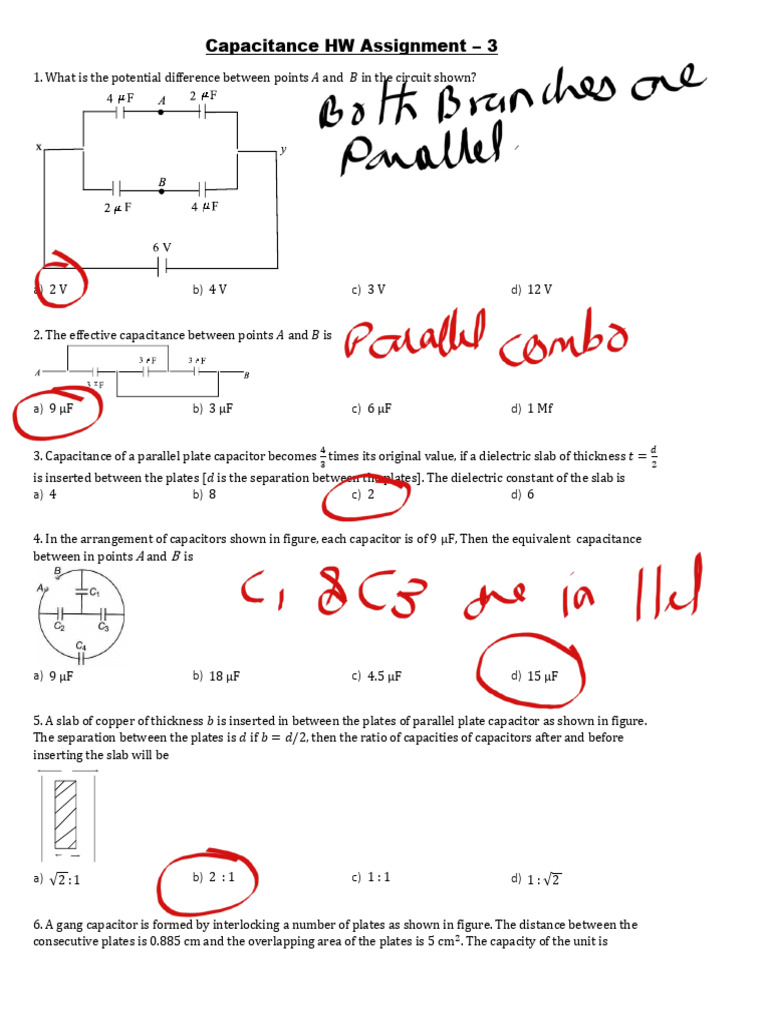 Capacitance HW Assignment – 3
1. What is the potential difference between points A and B in the circuit shown?
4 μF A 2 μF
Both Branches are
Parallel
x y
B
2 μF 4 μF
6 V
a) 2 V b) 4 V c) 3 V d) 12 V
2. The effective capacitance between points A and B is
Parallel combo
3 μF 3 μF
A B
3 μF
a) 9 μF b) 3 μF c) 6 μF d) 1 Mf
3. Capacitance of a parallel plate capacitor becomes 4/3 times its original value, if a dielectric slab of thickness t = d/2
is inserted between the plates [d is the separation between the plates]. The dielectric constant of the slab is
a) 4 b) 8 c) 2 d) 6
4. In the arrangement of capacitors shown in figure, each capacitor is of 9 μF, Then the equivalent capacitance
between in points A and B is
B
A C1
C2 C3
C4
C1 & C3 are in llel
a) 9 μF b) 18 μF c) 4.5 μF d) 15 μF
5. A slab of copper of thickness b is inserted in between the plates of parallel plate capacitor as shown in figure.
The separation between the plates is d if b = d/2, then the ratio of capacities of capacitors after and before
inserting the slab will be
a) √2 : 1 b) 2 : 1 c) 1 : 1 d) 1 : √2
6. A gang capacitor is formed by interlocking a number of plates as shown in figure. The distance between the
consecutive plates is 0.885 cm and the overlapping area of the plates is 5 cm². The capacity of the unit is